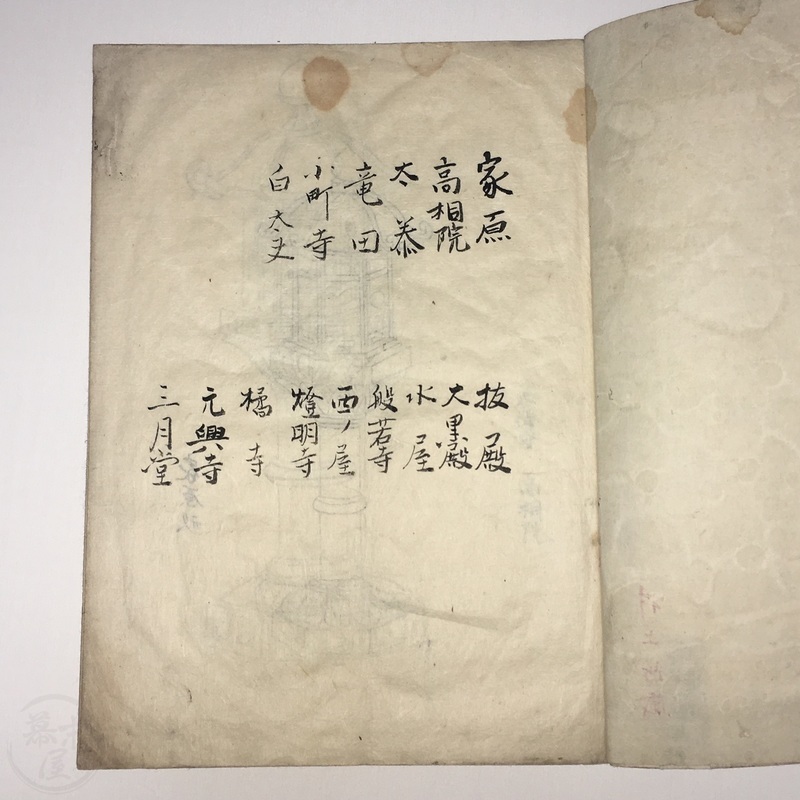 家原
高相院
太秦
竜田
小町寺
白太夫
抜殿
大黒殿
水屋
般若寺
西ノ屋
燈明寺
橘寺
元興寺
三月堂